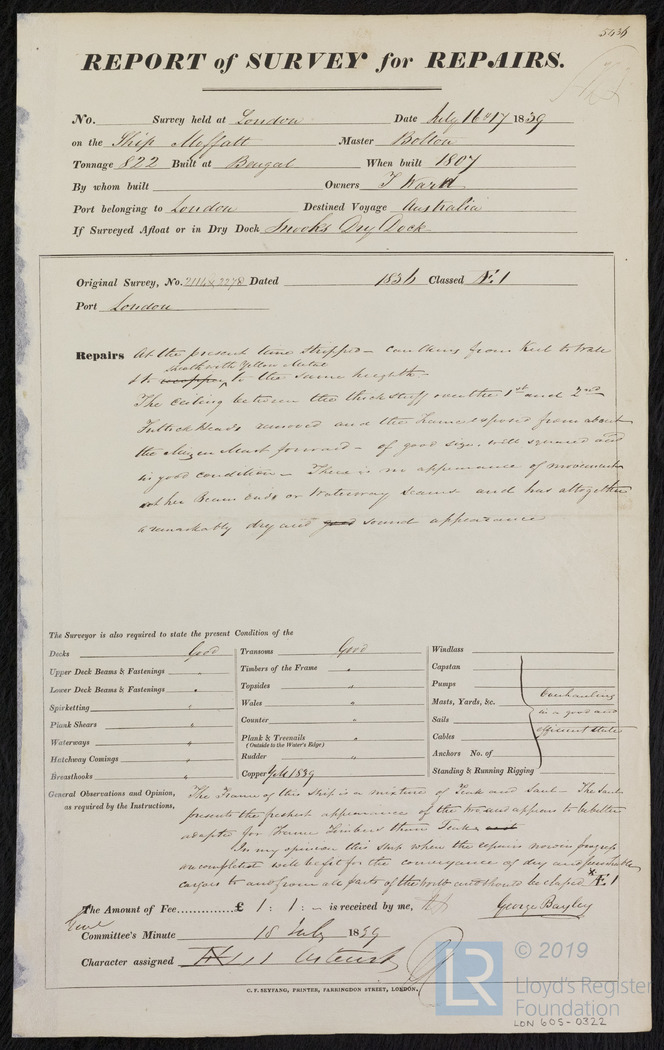 5636
REPORT of SURVEY for REPAIRS.
No. Survey held at London Date July 16 & 17 1839
on the Ship Moffatt Master Bolton
Tonnage 822 Built at Bengal When built 1807
By whom built Owners T Ward
Port belonging to London Destined Voyage Australia
If Surveyed Afloat or in Dry Dock Snooks Dry Dock
Original Survey, No. 2114 & 2278 Dated 1836 Classed Æ 1
Port London
Repairs At the present time stripped - caulking from Keel to Wale
sheath with Yellow Metal
& to to the same heighth
The Ceiling between the thick stuff over the 1st and 2nd
Futtock Heads removed and the Frame exposed from about
the Mizen Mast forward - of good size, well squared and
in good condition - There is no appearance of movement
at her Beam Ends or Waterway Seams and has altogether
a remarkably dry and good sound appearance
The Surveyor is also required to state the present Condition of the
Decks Good
Upper Deck Beams & Fastenings "
Lower Deck Beams & Fastenings "
Spirketting "
Plank Shears "
Waterways "
Hatchway Comings "
Breasthooks "
Transoms Good
Timbers of the Frame "
Topsides "
Wales "
Counter "
Plank & Treenails "
(Outside to the Water's Edge)
Rudder "
Copper 1839
Windlass
Capstan
Pumps
Masts, Yards, &c.
Sails
Cables
Anchors No. of
Standing & Running Rigging
Overhauling
in a good and
efficient state
General Observations and Opinion,
as required by the Instructions,
The Frame of this ship is a mixture of Teak and Saul - The Saul
presents the freshest appearance of the two and appears to be better
adapted for Frame Timbers than Teak
In my opinion this ship when the repairs now in progress
are completed will be fit for the conveyance of dry and perishable
cargoes to and from all parts of the world and should be classed * Æ 1
The Amount of Fee £ 1 : 1 : - is received by me,
George Bayley
Committee's Minute 18 July 1839
Character assigned Æ 1 Asterisk
C. F. SEYFANG, PRINTER, FARRINGDON STREET, LONDON.
LR
© 2019
Lloyd's Register
Foundation
LON 605-0322